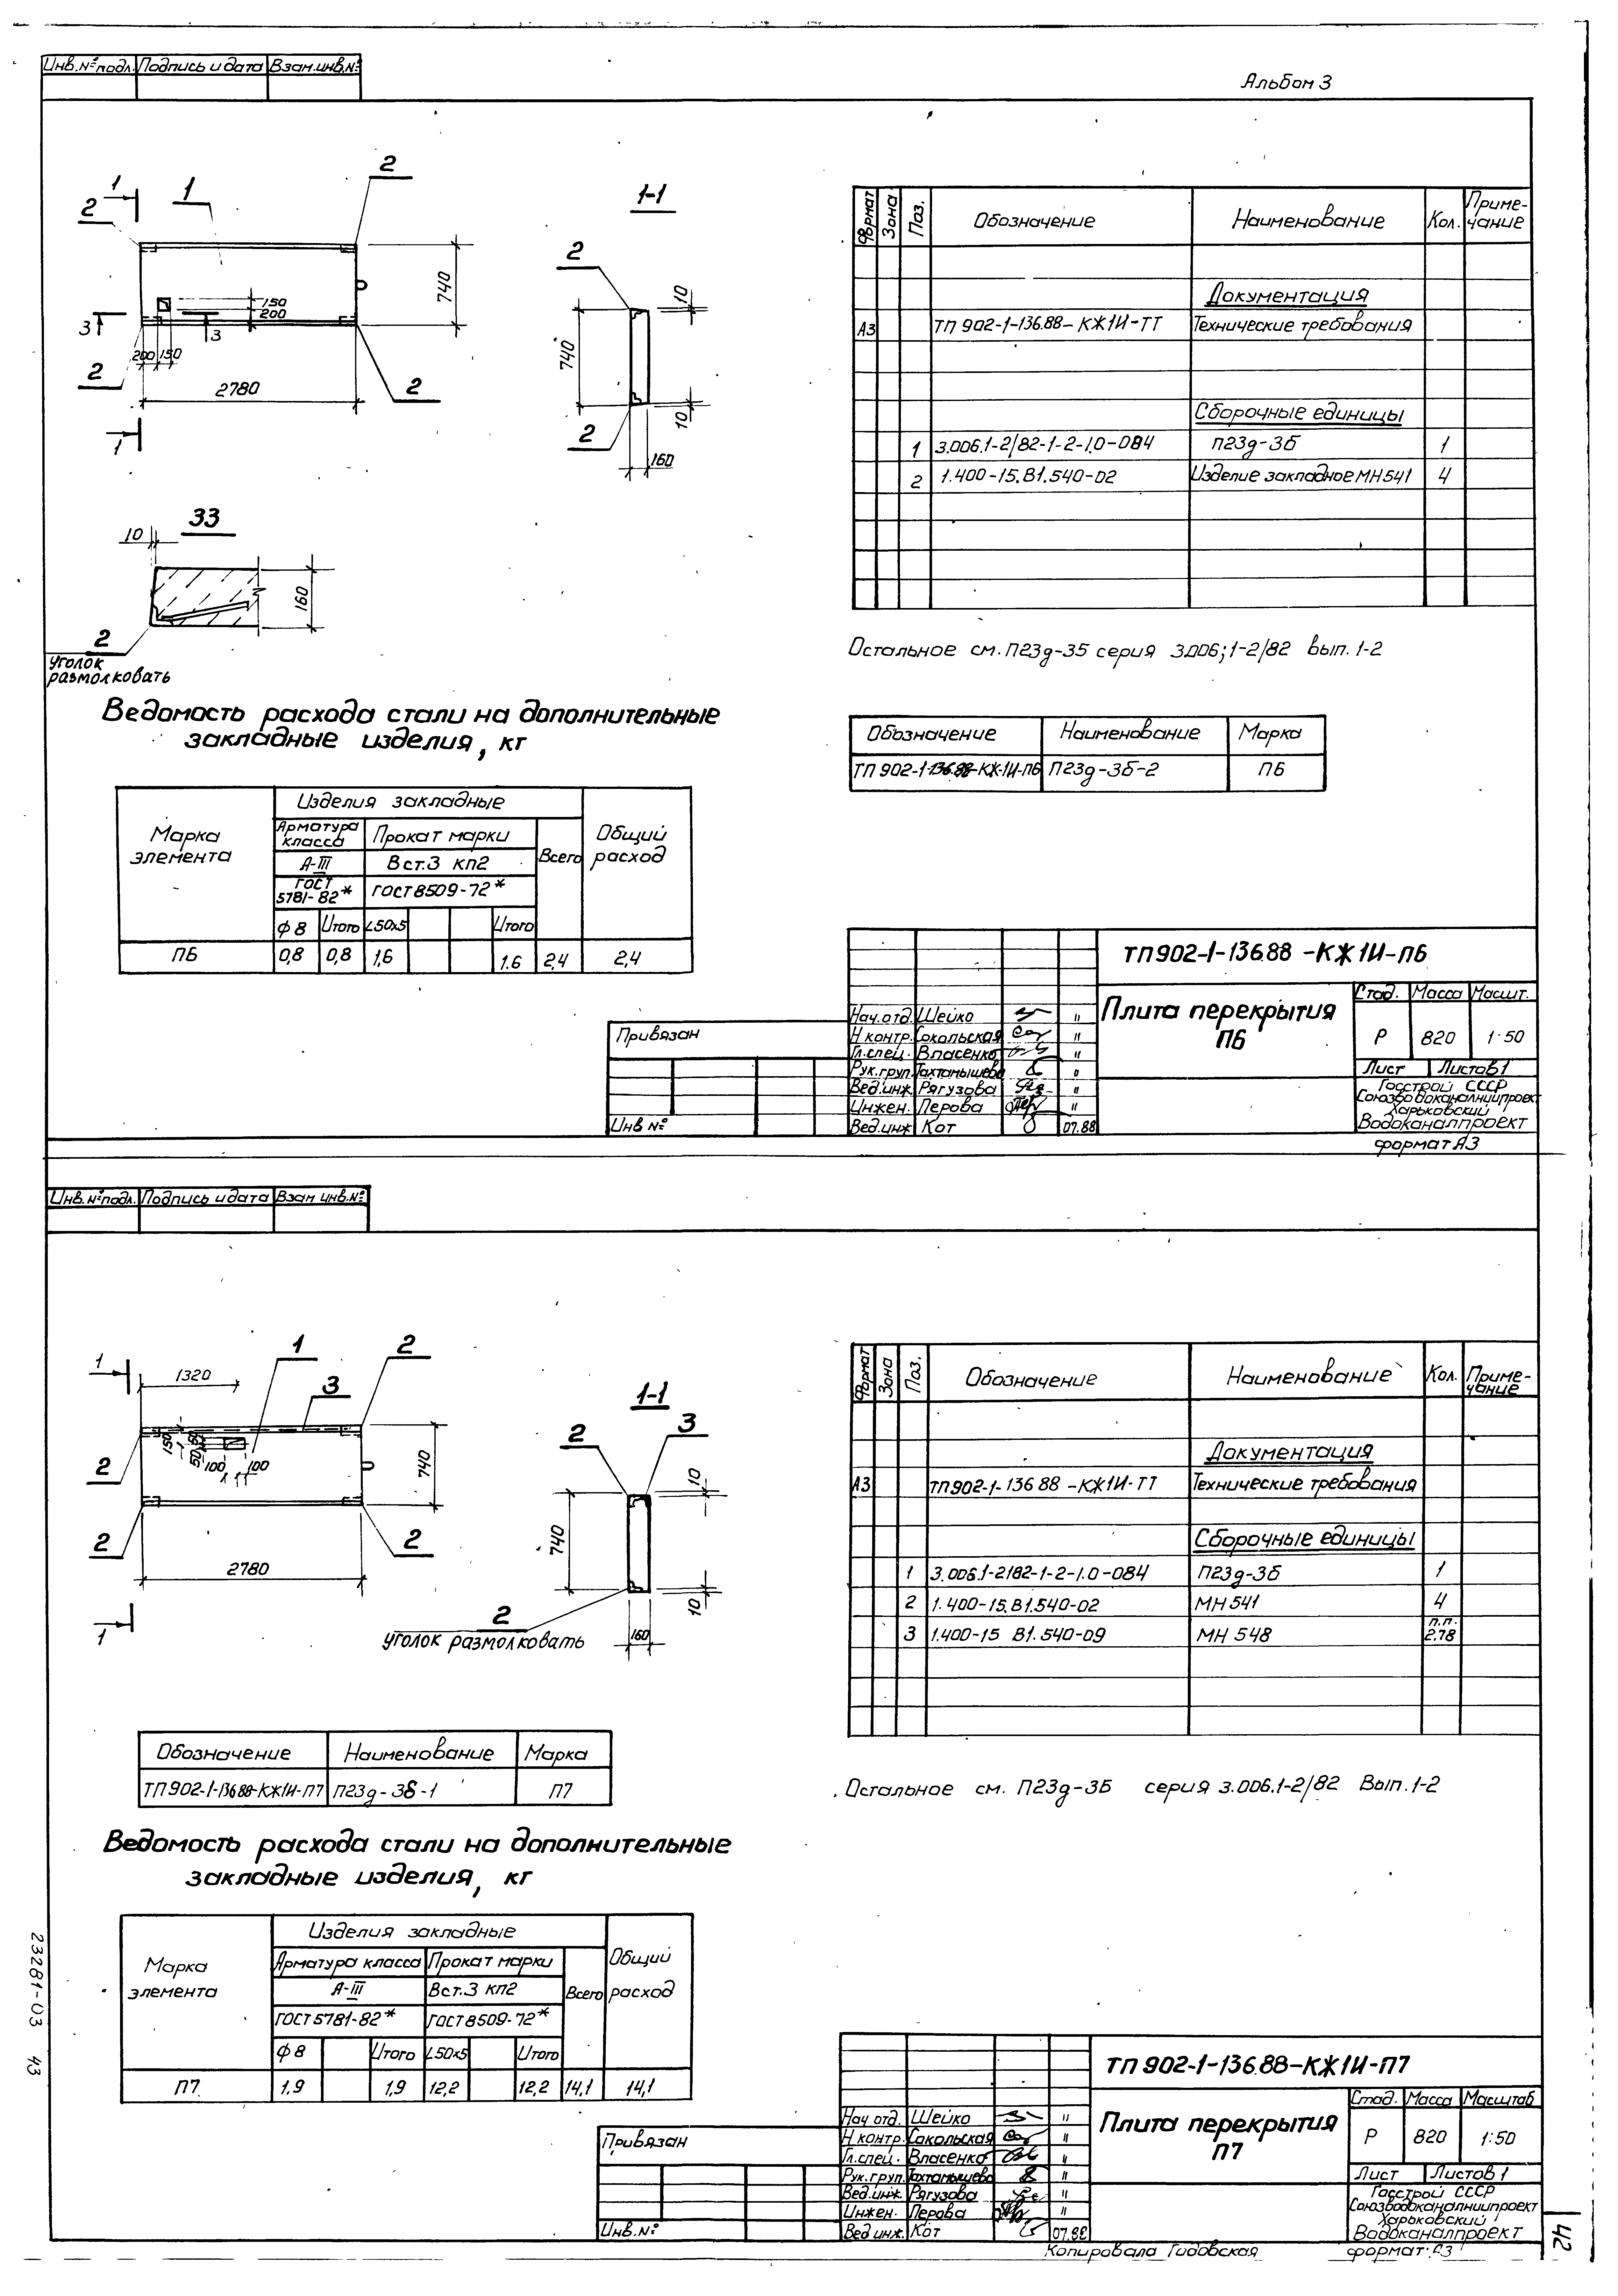 Инв. № подл. Подпись и дата Взам. инв. №
Альбом 3
1 1 2
2
740
150
200
3 3
200 150
2 2
2780
1
1-1
2
10
740
10
2
160
33
10
160
2
уголок
размолковать
Формат Зона Поз. Обозначение Наименование Кол. Приме-
чание
Документация
А3 ТП 902-1-136.88-КЖ1И-ТТ Технические требования
Сборочные единицы
1 3.006.1-2/82-1-2-1.0-084 П23д-3б 1
2 1.400-15.В1.540-02 Изделие закладное МН541 4
Остальное см. П23д-35 серия 3.006;1-2/82 вып. 1-2
Ведомость расхода стали на дополнительные
закладные изделия, кг
Обозначение Наименование Марка
ТП 902-1-136.88-КЖ1И-П6 П23д-3б-2 П6
Марка
элемента
Изделия закладные
Арматура
класса
Прокат марки
Всего
Общий
расход
А-III
Вст.3 кп2
ГОСТ
5781-82*
ГОСТ 8509-72*
ф8 Итого L50х5 Итого
П6 0,8 0,8 1,6 1.6 2,4 2,4
ТП902-1-136.88-КЖ1И-П6
Плита перекрытия
П6
Стад. Масса Масшт.
Р 820 1:50
Лист Листов 1
Госстрой СССР
Союзводоканалниипроект
Харьковский
Водоканалпроект
Привязан
Инв №
Нач. отд. Шейко "
Н контр. Сокольская "
Гл. спец. Власенко "
Рук. груп. Тахтамышева "
Вед. инж. Рягузова "
Инжен. Перова "
Вед. инж Кот 07.88
формат А3
Инв. № подл. Подпись и дата Взам инв. №
1 1320 1 2
3
150
50 50
100 100
740
2
2 2
2780
1
1-1
2 3
10
740
10
2
уголок размолковать
160
Формат Зона Поз. Обозначение Наименование Кол. Приме-
чание
Документация
А3 ТП902-1-136.88-КЖ1И-ТТ Технические требования
Сборочные единицы
1 3.006.1-2182-1-2-1.0-084 П23д-3б 1
2 1.400-15.В1.540-02 МН 541 4
3 1.400-15 В1.540-09 МН 548 п.п. 2.78
Обозначение Наименование Марка
ТП902-1-136.88-КЖ1И-П7 П23д-3б-1 П7
Остальное см. П23д-3Б серия 3.006.1-2/82 Вып. 1-2
Ведомость расхода стали на дополнительные
закладные изделия, кг
Марка
элемента
Изделия закладные
Арматура класса Прокат марки
Всего
Общий
расход
А-III Вст.3 кп2
ГОСТ 5781-82* ГОСТ 8509-72*
ф8 Итого L50х5 Итого
П7 1,9 1,9 12,2 12,2 14,1 14,1
23281-03 43
ТП 902-1-136.88-КЖ1И-П7
Плита перекрытия
П7
Стад. Масса Масштаб
Р 820 1:50
Лист Листов 1
Госстрой СССР
Союзводоканалниипроект
Харьковский
Водоканалпроект
Привязан
Инв. №
Нач отд. Шейко "
Н контр. Сокольская "
Гл. спец. Власенко "
Рук. груп. Тахтамышева "
Вед. инж. Рягузова "
Инжен. Перова "
Вед инж. Кот 07.88
Копировала Гидовская формат А3
42